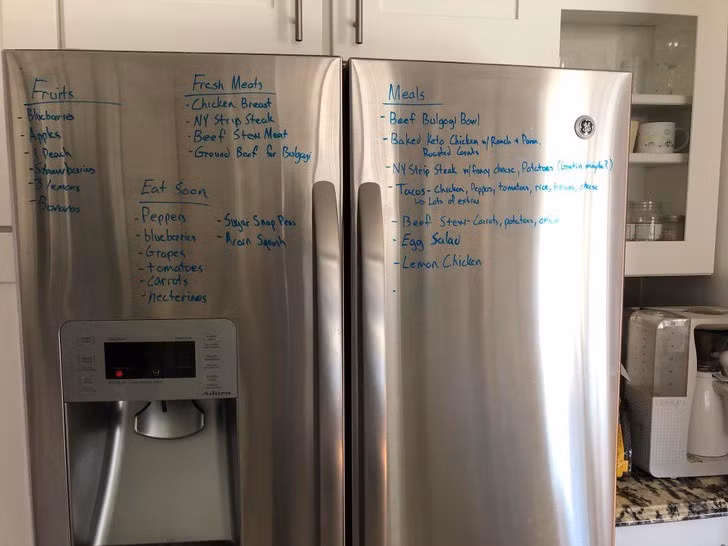 Fruits
- Blueberries
- Apples
- 1 Peach
- Strawberries
- 3 lemons
- Bananas
Fresh Meats
- Chicken Breast
- NY Strip Steak
- Beef Stew Meat
- Ground Beef for Bulgogi
Eat Soon
- Peppers
- blueberries
- Grapes
- tomatoes
- carrots
- necterines
- Sugar Snap Peas
- Acorn Squash
Meals
- Beef Bulgogi Bowl
- Baked Keto Chicken w/ Ranch + Parm.
Roasted Carrots
- NY Strip Steak w/ fancy cheese, Potatoes (Gratin maybe?)
- Tacos - Chicken, Peppers, tomatoes, rice, beans, cheese
Lots of extras
- Beef Stew - Carrots, potatoes,
- Egg Salad
- Lemon Chicken
-
GE
Adora